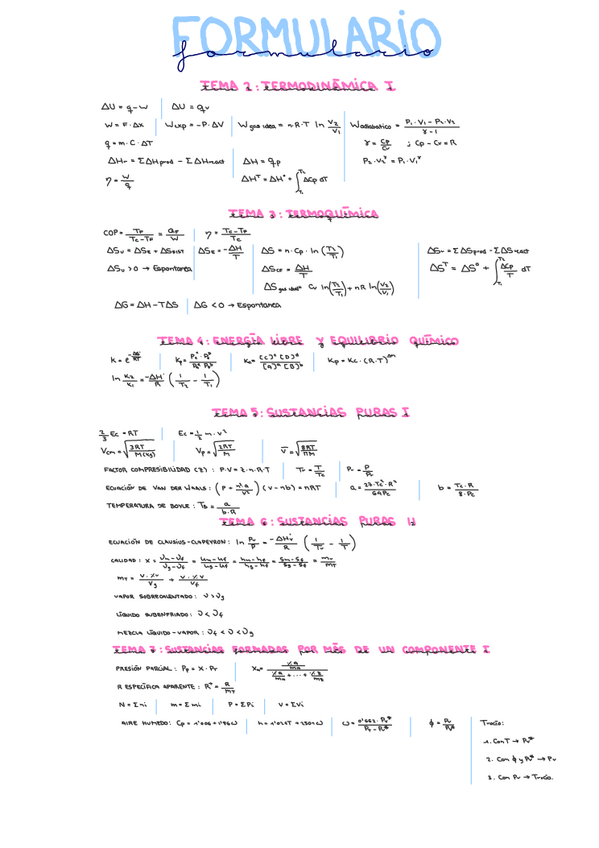 FORMULARIO
formulario
TEMA 2: TERMODINÁMICA I
ΔU = q - w | ΔU = qv
W = F · Δx | Wexp = -P · ΔV | W gas ideal = n·R·T ln V2/V1 | Wadiabatico = (P1·V1 - P2·V2)/(γ-1)
q = m · C · ΔT
γ = Cp/Cv ; Cp - Cv = R
ΔHr = ΣΔHprod - ΣΔHreact | ΔH = qp
P2·V2^γ = P1·V1^γ
η = W/q | ΔH^T = ΔH° + ∫T1^T2 ΔCp dT
TEMA 3: TERMOQUÍMICA
COP = TF/(TC-TF) = QF/W | η = (TC-TF)/TC
ΔSU = ΔSE + ΔSSIST | ΔSE = -ΔH/T | ΔS = n·Cp·ln(T2/T1)
ΔSr = ΣΔSprod - ΣΔSreact
ΔSU > 0 → Espontanea | ΔSCF = ΔH/T
ΔS^T = ΔS° + ∫T1^T2 ΔCp/T dT
ΔS gas ideal = Cv ln(T2/T1) + nR ln(V2/V1)
ΔG = ΔH - TΔS | ΔG < 0 → Espontanea
TEMA 4: ENERGÍA LIBRE Y EQUILIBRIO QUÍMICO
Kp = Kc·(R·T)^Δn
ln K2/K1 = -ΔH°/R (1/T2 - 1/T1)
TEMA 5: SUSTANCIAS PURAS I
2/3 Ec = RT | Ec = 1/2 m·v²
Vcm = √(3RT/M(kg)) | Vp = √(2RT/M) | v̄ = √(8RT/πM)
FACTOR COMPRESIBILIDAD (z): P·V = z·n·R·T | Tr = T/Tc | Pr = P/Pc
ECUACIÓN DE VAN DER WAALS: (P + n²a/V²)(V - nb) = nRT | a = 27·Tc²·R²/64Pc | b = Tc·R/8·Pc
TEMPERATURA DE BOYLE: TB = a/b·R
TEMA 6: SUSTANCIAS PURAS II
ECUACIÓN DE CLAUSIUS-CLAPEYRON: ln Pv/P = -ΔHv/R (1/Tv - 1/T)
CALIDAD: X =
VAPOR SOBRECALENTADO: υ > υg
LÍQUIDO SUBENFRIADO: υ < υf
MEZCLA LÍQUIDO-VAPOR: υf < υ < υg
TEMA 7: SUSTANCIAS FORMADAS POR MÁS DE UN COMPONENTE I
PRESIÓN PARCIAL: Pp = X·PT
R ESPECÍFICA APARENTE: R* = R/MT
N = Σni | m = Σmi | P = ΣPi | V = ΣVi
AIRE HUMEDO:
Trocío:
1. Con T → Pv*
2. Con ϕ y Pv* → Pv
3. Con Pv → Trocío.